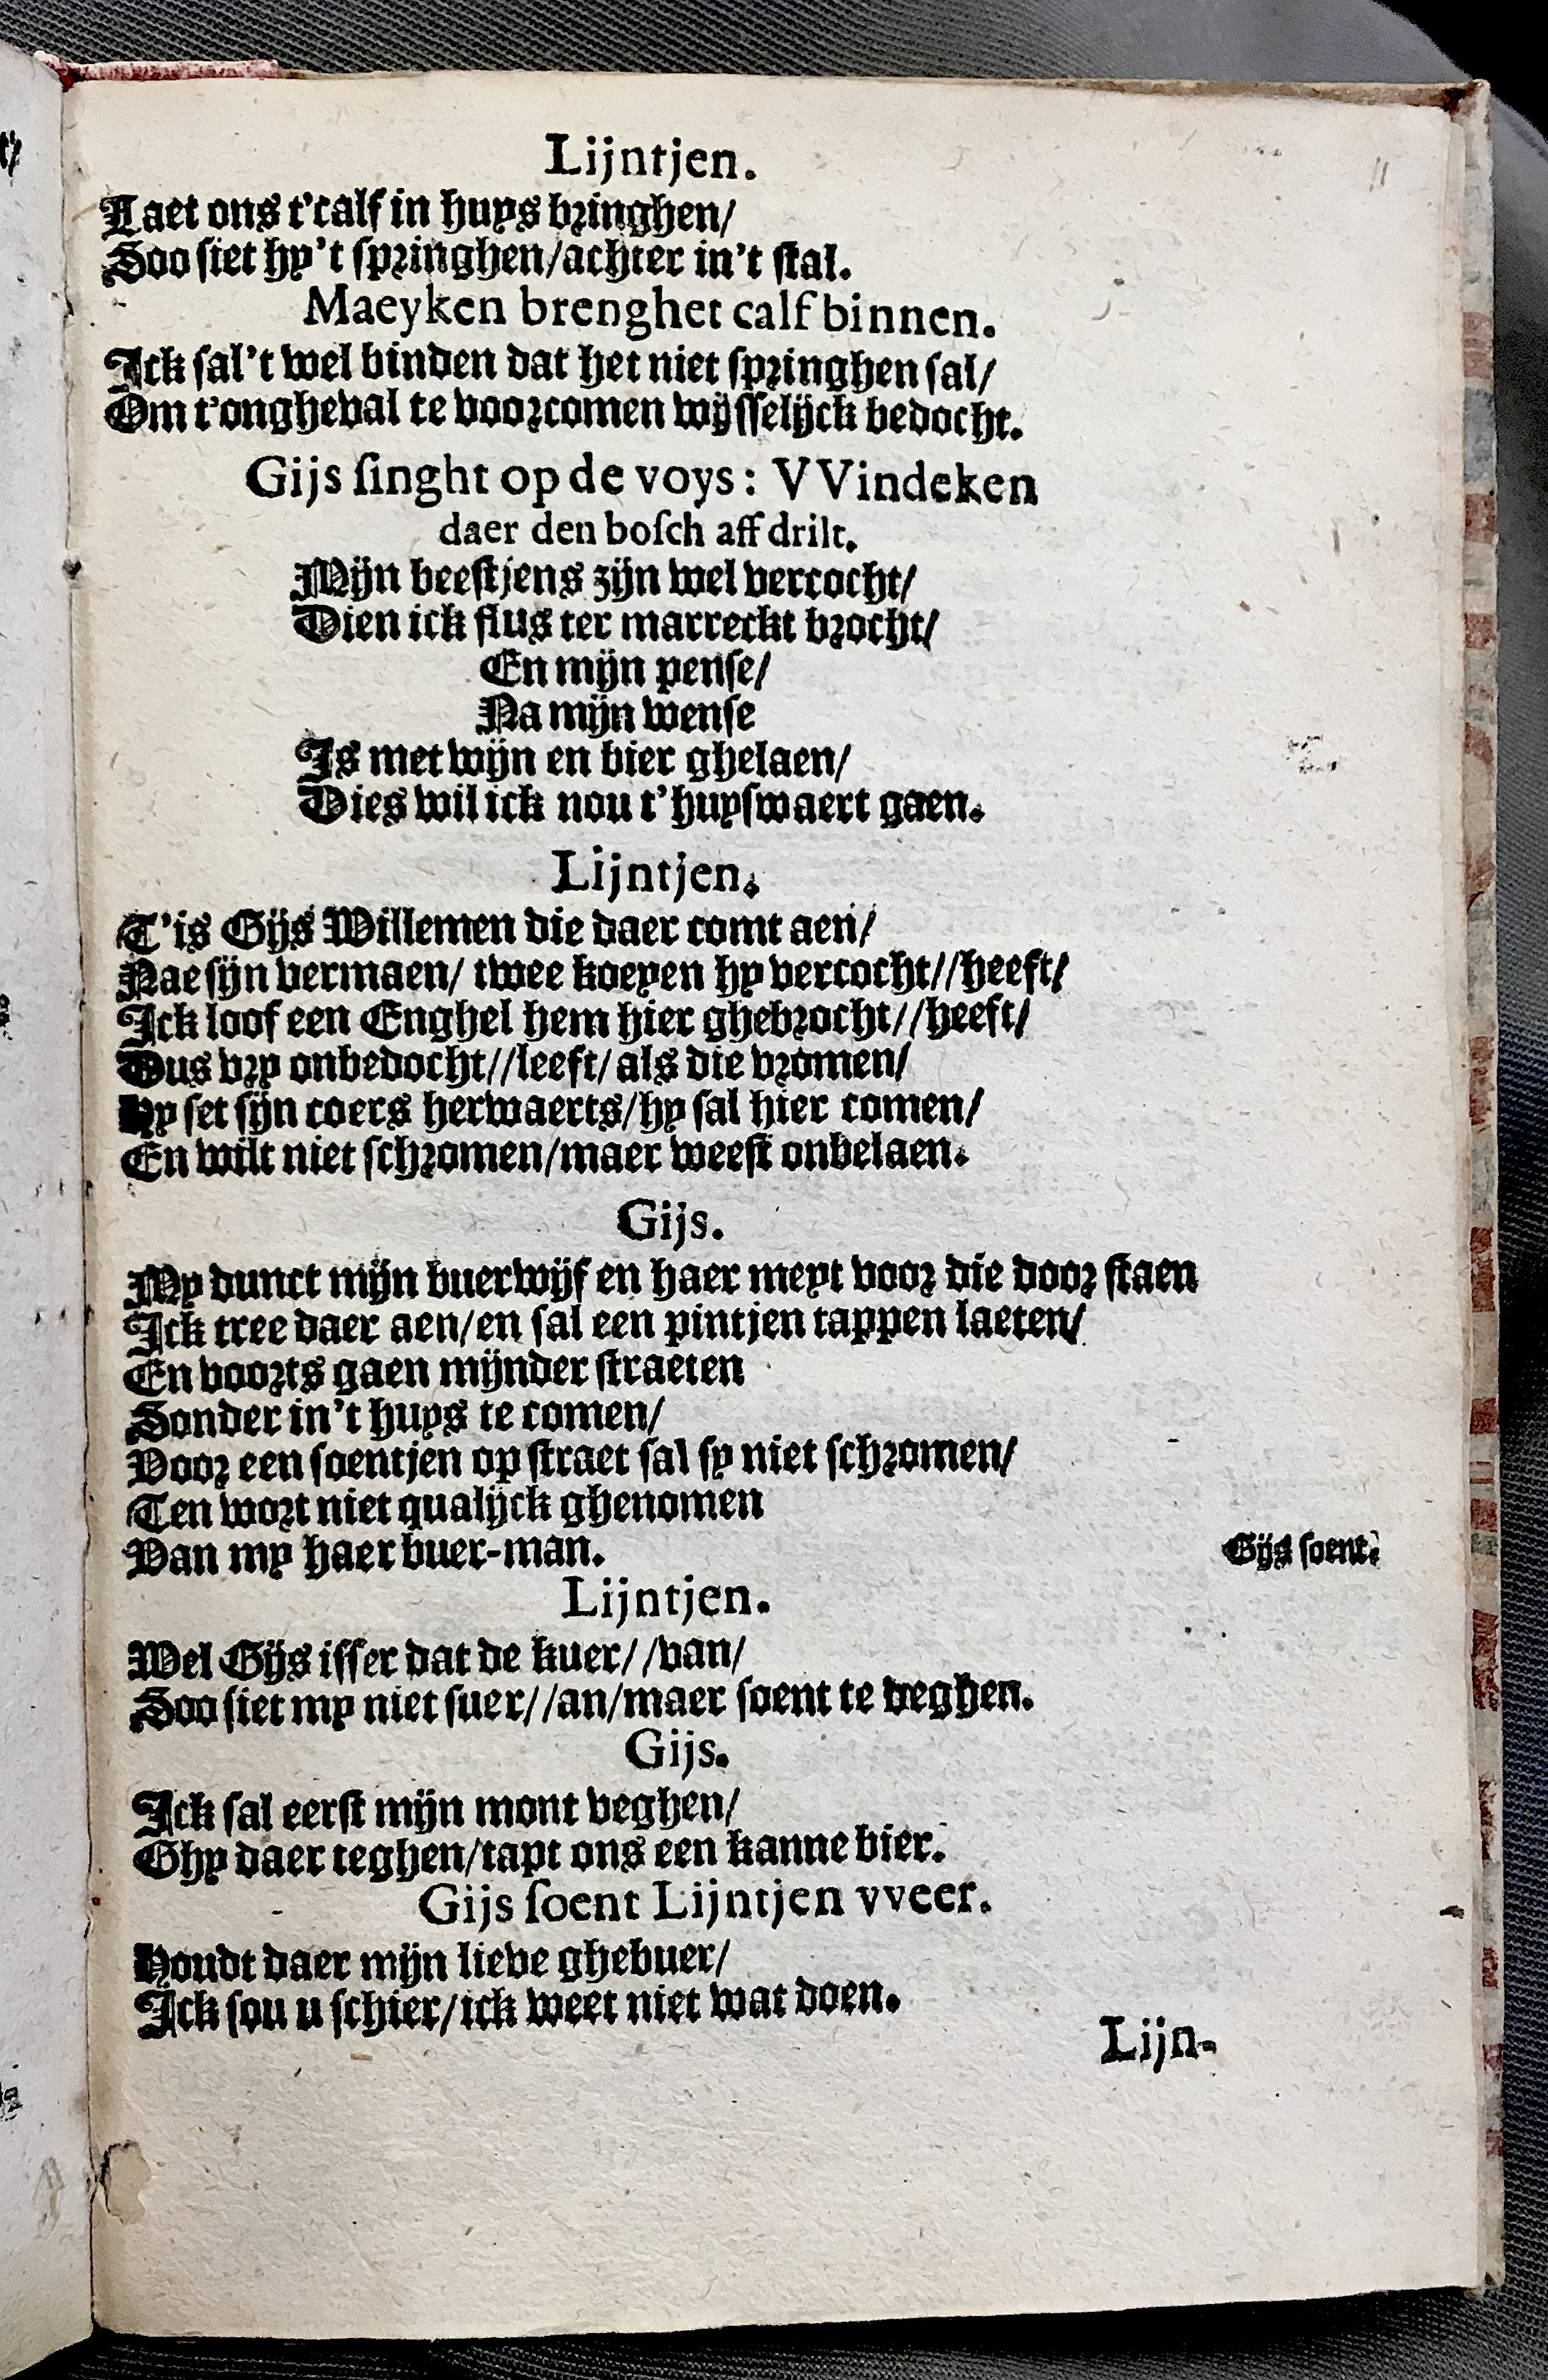 Lijntjen.
Laet ons t'calf in huys bringhen/
Soo siet hy't springhen/achter in't stal.
Maeyken brenghet calf binnen.
Ick sal't wel binden dat het niet springhen sal/
Om t'ongheval te voorcomen wijsselijck bedocht.
Gijs singht op de voys: VVindeken
daer den bosch aff drilt.
Mijn beestjens zijn wel vercocht/
Dien ick flus ter marreckt brocht/
En mijn pense/
Na mijn wense
Is met wijn en bier ghelaen/
Dies wil ick nou t'huyswaert gaen.
Lijntjen.
T'is Gijs Willemen die daer comt aen/
Nae sijn vermaen/ twee koeyen hy vercocht//heeft/
Ick loof een Enghel hem hier ghebrocht//heeft/
Dus vry onbedocht//leeft/ als die vromen/
Hy set sijn coers herwaerts/hy sal hier comen/
En wilt niet schromen/maer weest onbelaen.
Gijs.
My dunct mijn buerwijf en haer meyt voor die door staen
Ick tree daer aen/en sal een pintjen tappen laeten/
En voorts gaen mijnder straeten
Sonder in't huys te comen/
Voor een soentjen op straet sal sy niet schromen/
Ten wort niet qualijck ghenomen
Van my haer buer-man. Gijs soent.
Lijntjen.
Wel Gijs isser dat de kuer//van/
Soo siet my niet suer//an/maer soent te deghen.
Gijs.
Ick sal eerst mijn mont veghen/
Ghy daer teghen/tapt ons een kanne bier.
Gijs soent Lijntjen vveer.
Houdt daer mijn lieve ghebuer/
Ick sou u schier/ick weet niet wat doen.
Lijn-